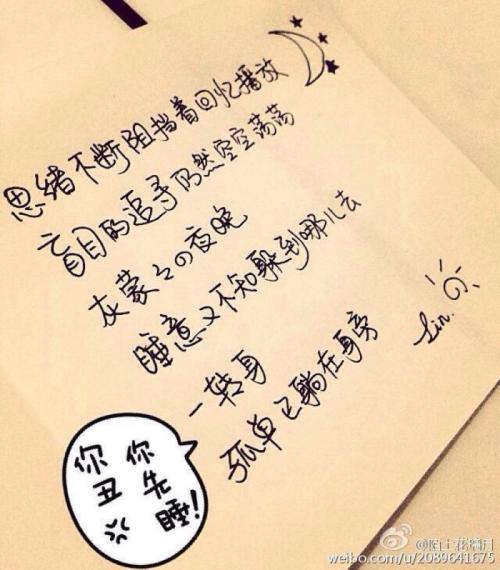 思绪不断阻挡着回忆播放
盲目的追寻仍然空空荡荡
灰蒙々の夜晚
睡意又不知躲到哪儿去
一转身
孤单已躺在身旁
Lin.
你丑
你先睡!
weibo.com/u/2089641675